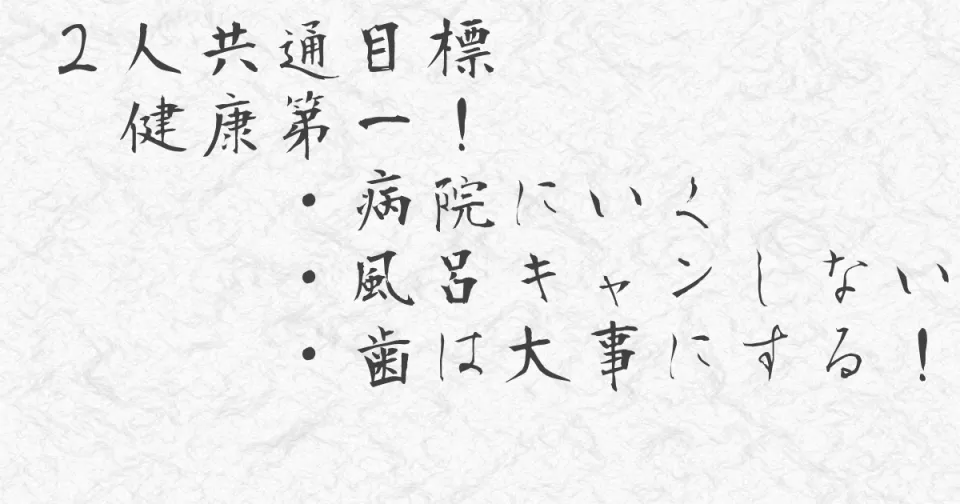 2人共通目標
健康第一！
・病院にいく
・風呂キャンしない
・歯は大事にする！